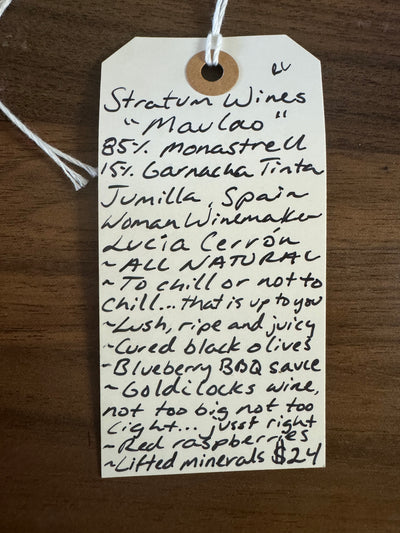 RV
Stratum Wines
"Maulao"
85% Monastrell
15% Garnacha Tinta
Jumilla, Spain
Woman Winemaker
Lucía Cerrón
~ALL NATURAL
~To chill or not to
chill...that is up to you
~Lush, ripe and juicy
~Cured black olives
~Blueberry BBQ sauce
~Goldilocks wine,
not too big not too
light... jusst right
~Red raspberries
~Lifted minerals $24